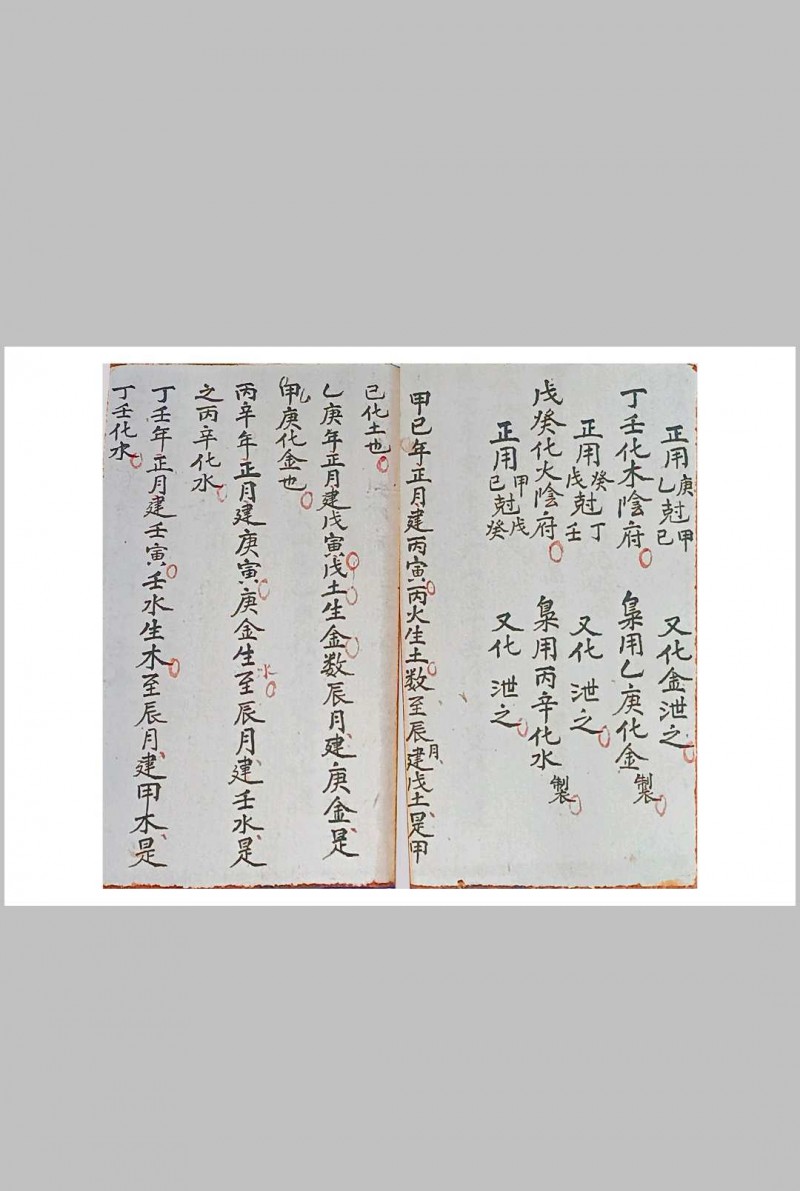 正用庚乙尅甲己　又化金泄之
丁壬化木陰府　臬用乙庚化金製
正用癸戊尅丁壬　又化泄之
戊癸化火陰府　臬用丙辛化水製
正用甲己尅戊癸　又化泄之
甲巳年正月建丙寅丙火生土数至辰月建戊土是甲
己化土也
乙庚年正月建戊寅戊土生金数辰月建庚金是
甲乙庚化金也
丙辛年正月建庚寅庚金生水至辰月建壬水是
之丙辛化水
丁壬年正月建壬寅壬水生木至辰月建甲木是
丁壬化水